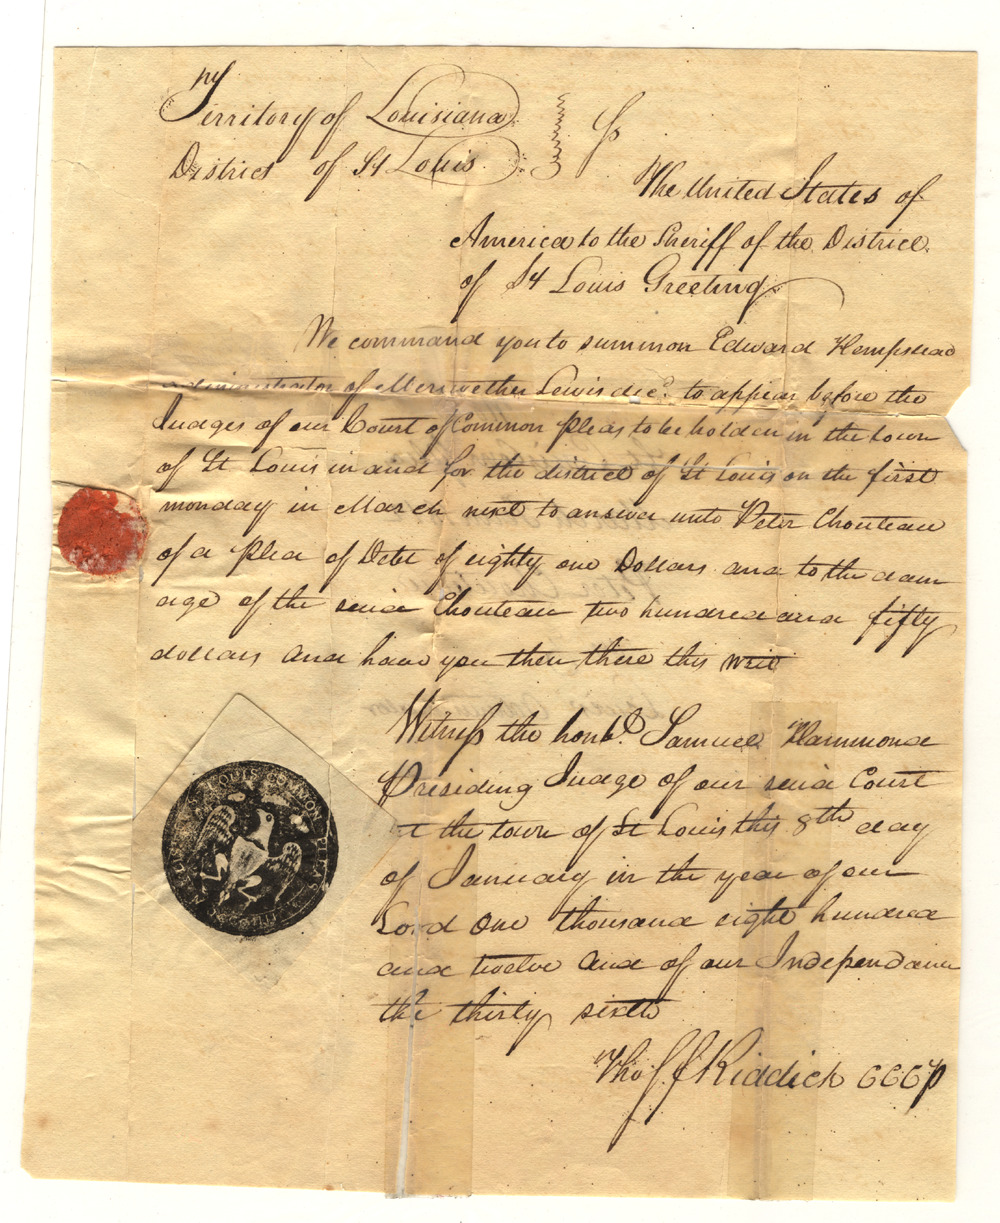 Territory of Louisiana
District of St Louis } ss
The United States of
America to the Sheriff of the District
of St Louis Greeting
We command you to summon Edward Hempstead
administrator of Meriwether Lewis decd. to appear before the
Judges of our Court of Common Pleas to be holden in the town
of St Louis in and for the district of St Louis on the first
monday in March next to answer unto Peter Chouteau
of a plea of Debt of eighty one Dollars and to the dam
age of the said Chouteau two hundred and fifty
dollars and have you then there this writ
Witness the honbl. Samuel Hammond
Presiding Judge of our said Court
at the town of St Louis this 8th day
of January in the year of our
Lord One thousand eight hundred
and twelve and of our Independance
the thirty sixth
Tho F Riddick CCCP
ST LOUIS COMMON PLEAS